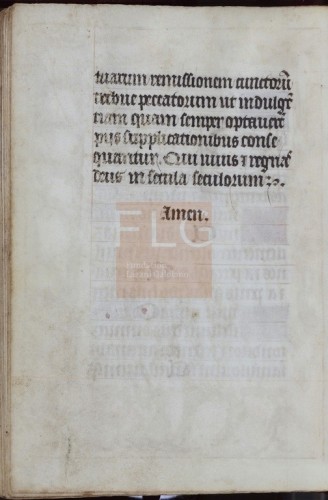 tuarum remissionem cunctorū
tribue peccatorum ut indulgē
tiam quam semper optaverūt
piis supplicationibus conse
quantur. Qui vivis ⁊ regnas
deus in secula seculorum.
Amen.
FLG